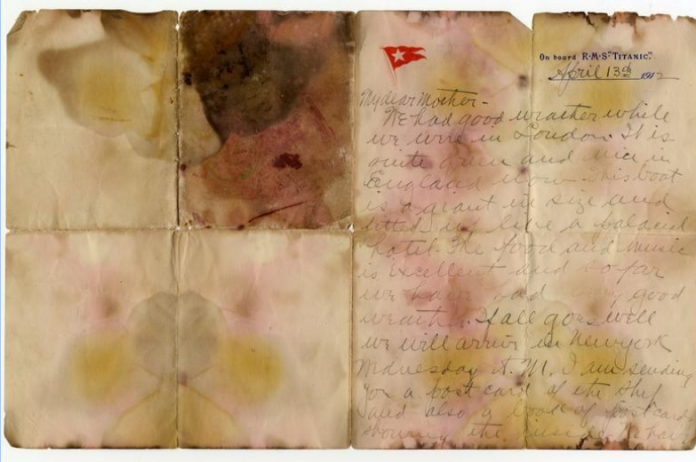 On board R.M.S. "TITANIC."
April 13th 1912
My dear Mother-
We had good weather while
we were in London. It is
quite green and nice in
England now. This boat
is a giant in size and
fitted up like a palacial
hotel. The food and music
is excellent and so far
we have had good
weather. If all goes well
we will arrive in Newyork
Wednesday A.M. I am sending
you a post card of the ship
and also a book of postcards
showing the inside